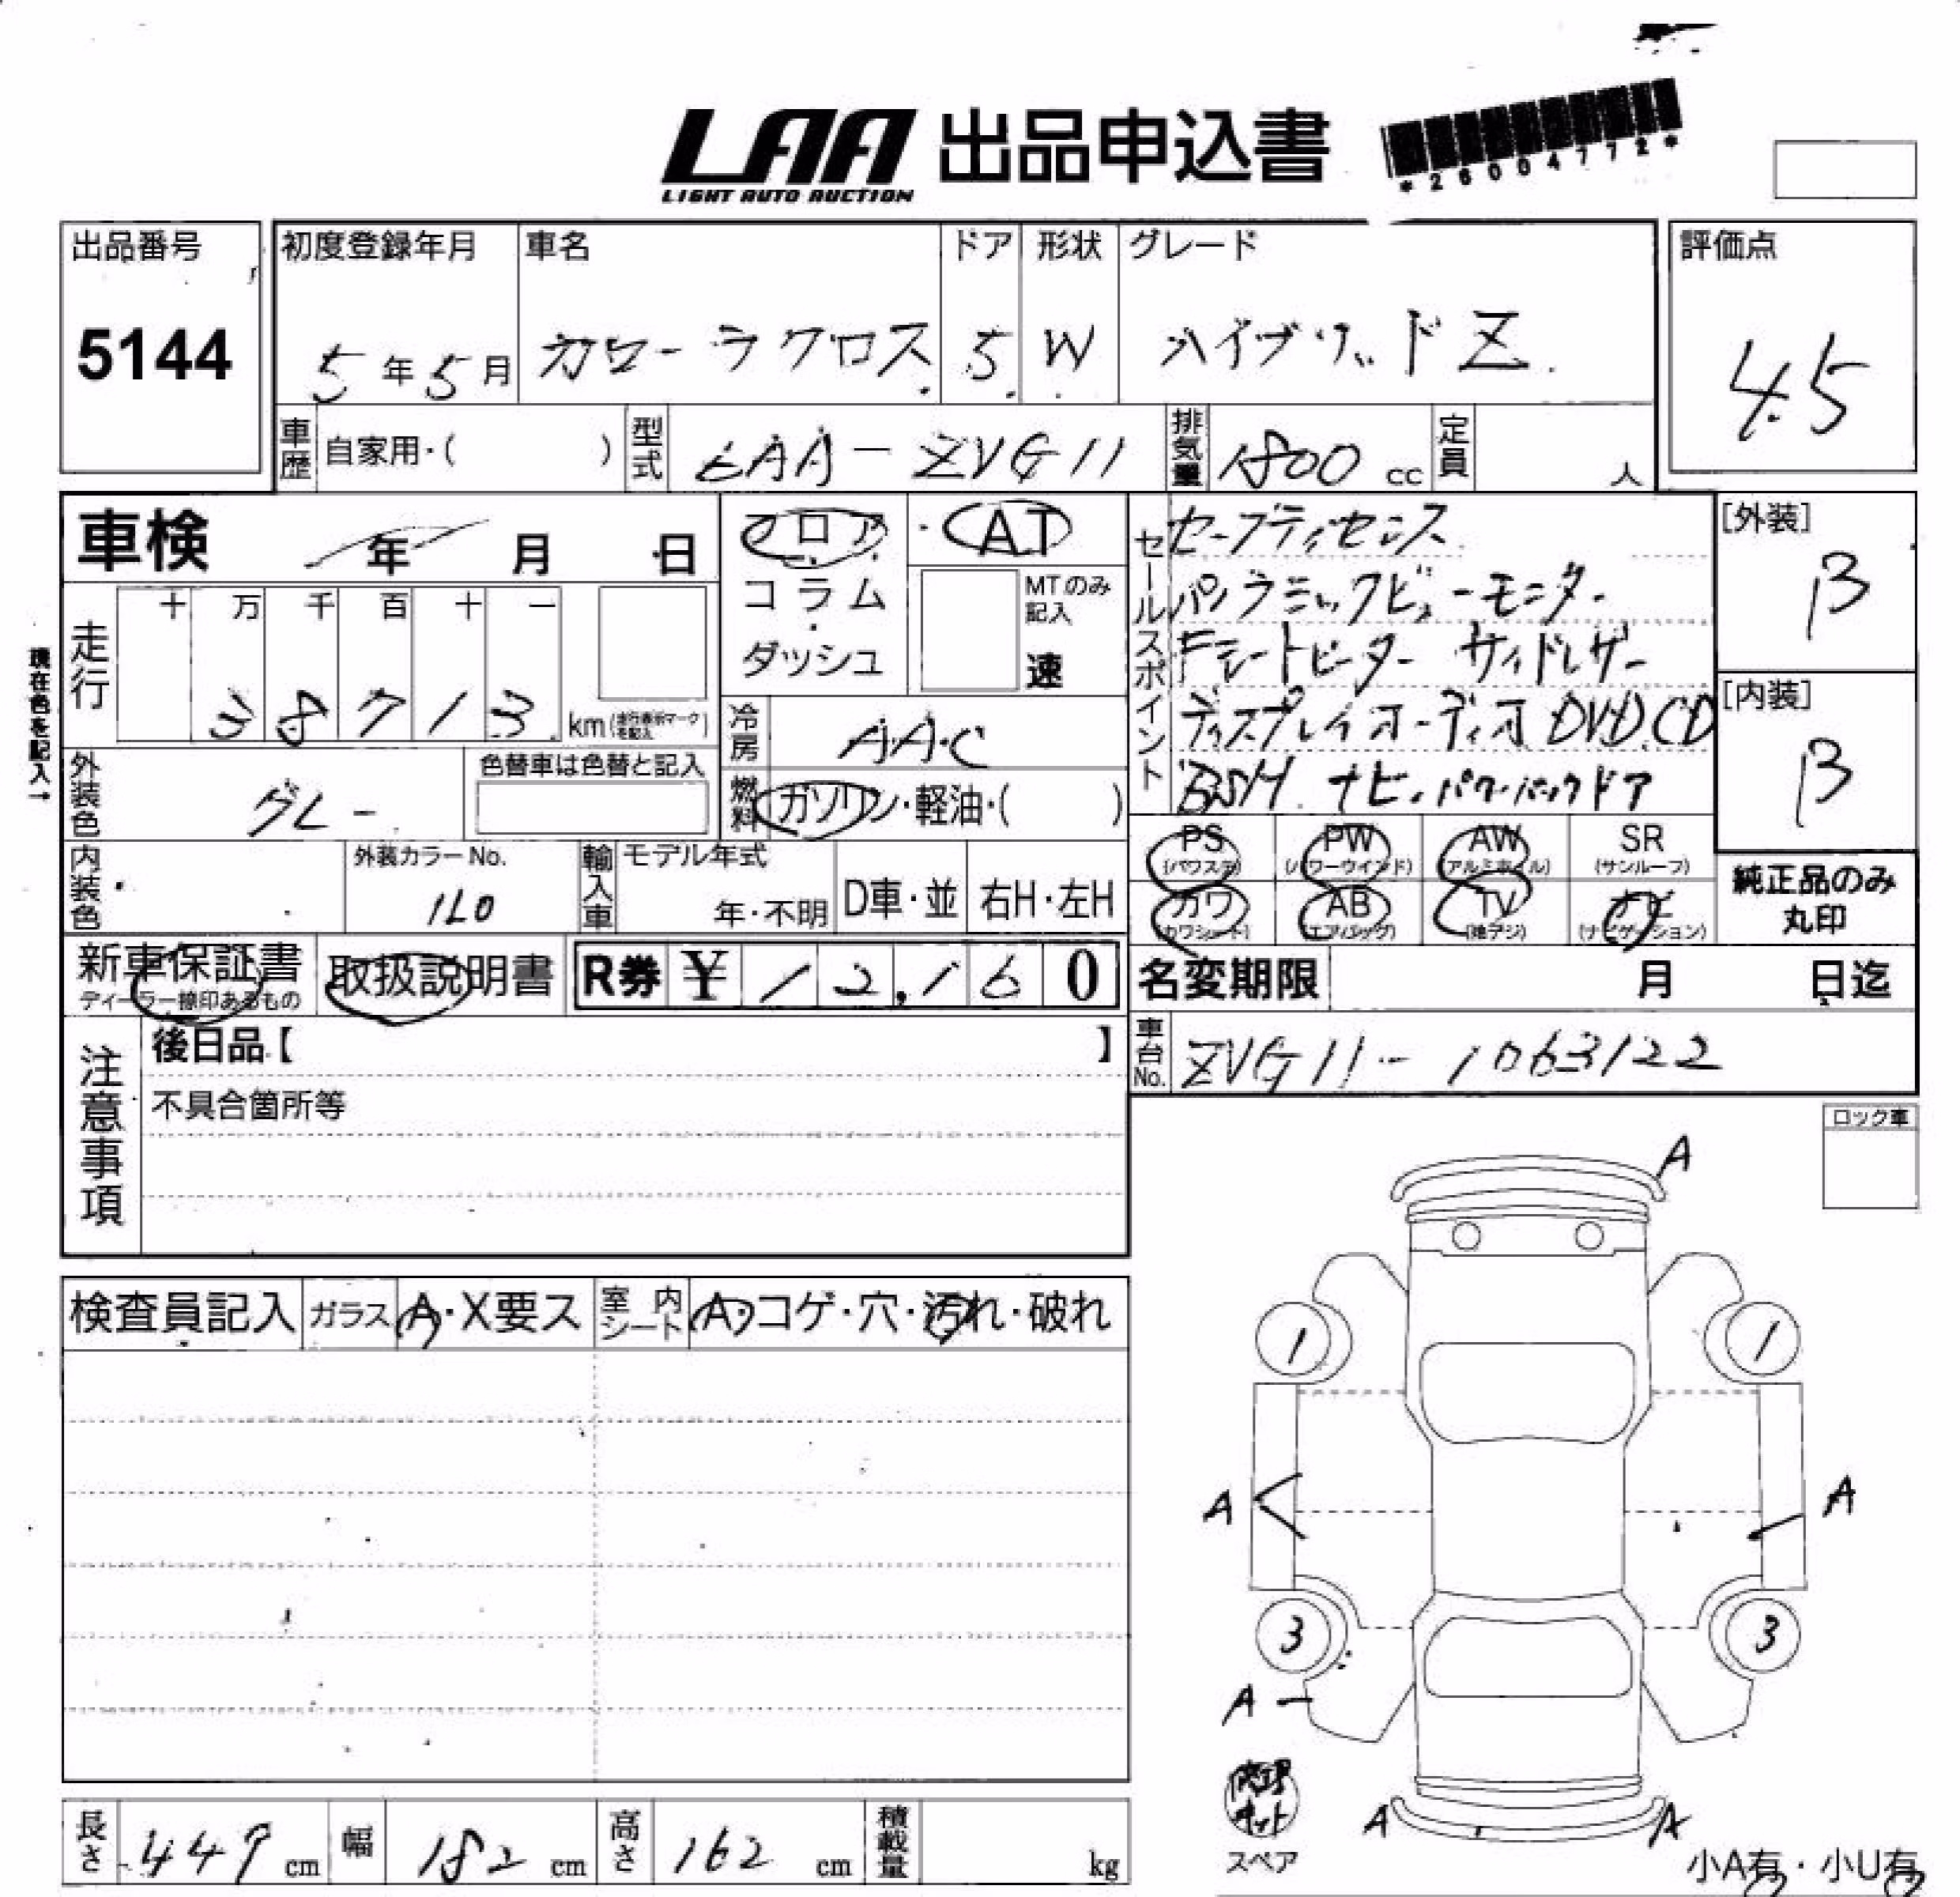 LAA 出品申込書
LIGHT AUTO AUCTION
*26004772*
出品番号
5144
初度登録年月 車名 ドア 形状 グレード
5年5月 カローラクロス 5 W ハイブリッドZ
評価点
4.5
車歴 自家用・( ) 型式 6AA-ZVG11 排気量 1800 cc 定員 人
車検 年 月 日
フロア
コラム
ダッシュ
AT
MTのみ記入
速
セールスポイント
セーフティセンス
パノラミックビューモニター
Fシートヒーター サイドレザー
ディスプレイオーディオ DVD.CD
BSM ナビ.パワーバックドア
[外装]
B
[内装]
B
現在色を記入→
走行 十 万 千 百 十 一
38713 km (走行表示マークを記入)
冷房 AAC
外装色 グレー
色替車は色替と記入
燃料 ガソリン・軽油・( )
内装色
外装カラーNo.
1L0
輸入車 モデル年式
年・不明 D車・並 右H・左H
PS (パワステ) PW (パワーウインド) AW (アルミホイル) SR (サンルーフ)
カワ (カワシート) AB (エアバッグ) TV (地デジ) ナビ (ナビゲーション)
純正品のみ
丸印
新車保証書
ディーラー捺印あるもの
取扱説明書
R券 ¥ 12,160
名変期限 月 日迄
車台No. ZVG11-1063122
注意事項
後日品【 】
不具合箇所等
ロック車
検査員記入 ガラス A・X要ス 室内シート A・コゲ・穴・汚れ・破れ
A
1 1
A A
3 3
A
修理キット
スペア
A A
小A有・小U有
長さ 449 cm 幅 182 cm 高さ 162 cm 積載量 kg